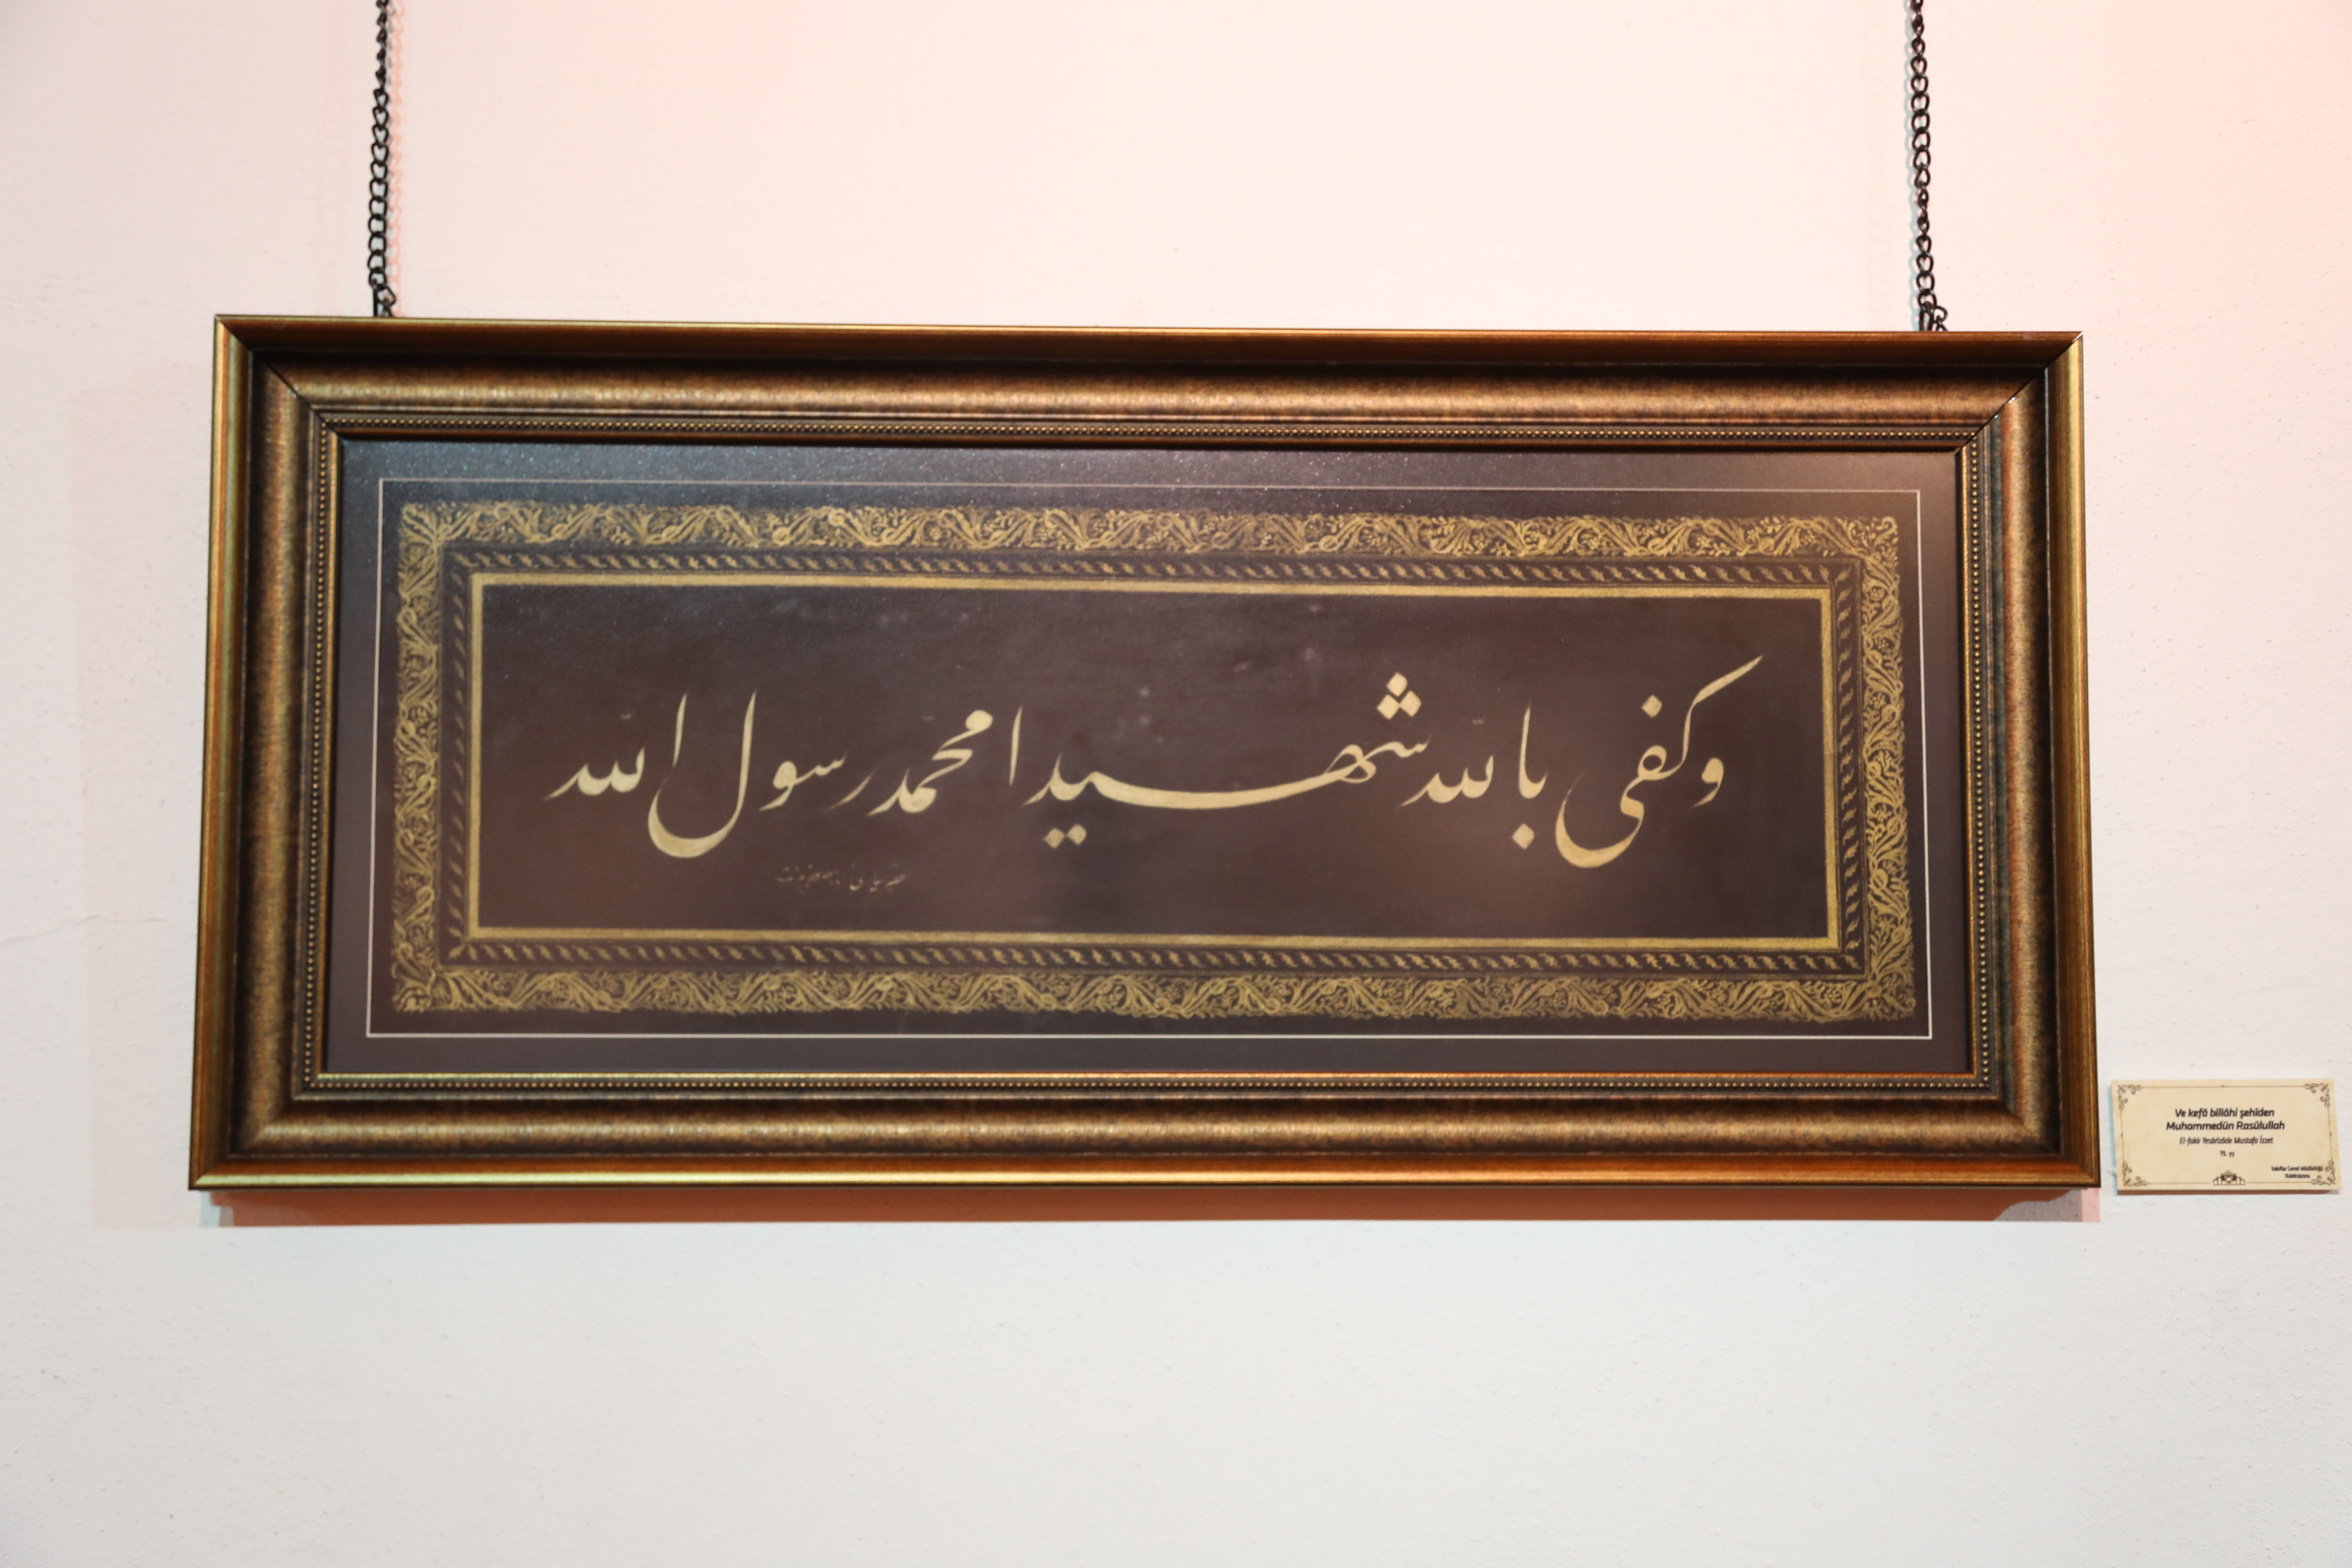 وكفى بالله شهيدا محمّد رسول الله
Ve kefâ billâhi şehîden
Muhammedün Rasûlullah
El-fakîr Yesârîzâde Mustafa İzzet
Vakıflar Genel Müdürlüğü
Koleksiyonu